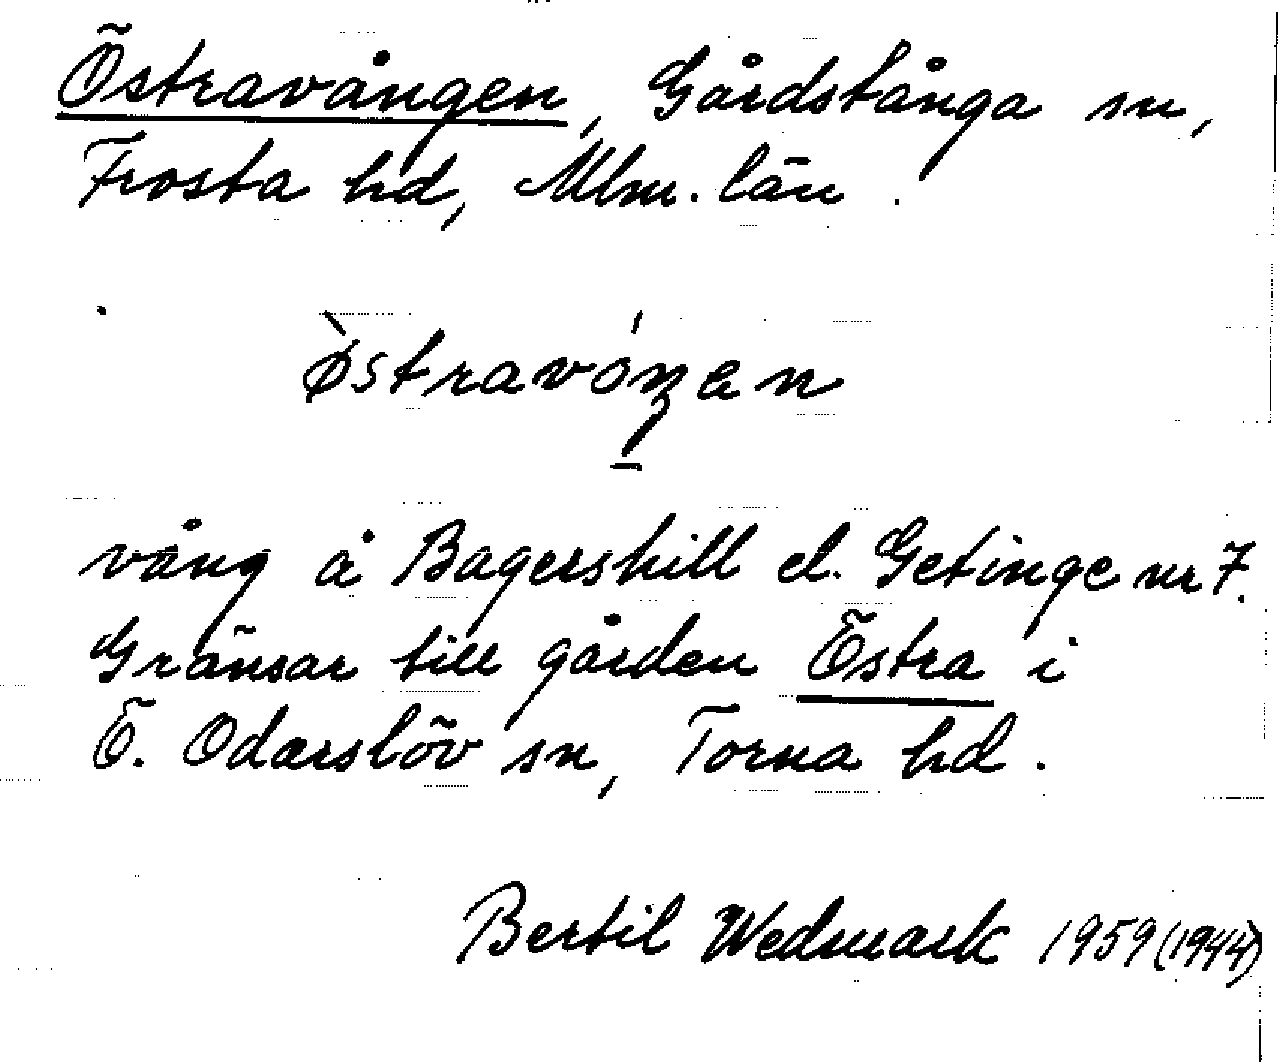 Östravången, Gårdstånga sn,
Frosta hd, Mlm. län.
østravóŋen
vång å Bagershill el. Getinge nr 7.
Gränsar till gården Östra i
Ö. Odarslöv sn, Torna hd.
Bertil Wedmark 1959 (1944)